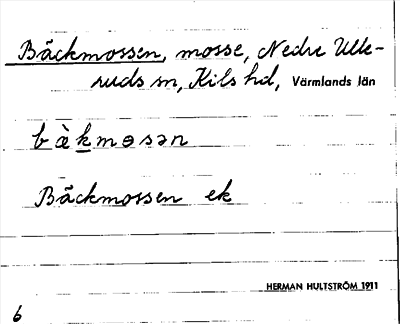 Bäckmossen, mosse, Nedre Ulle-
ruds sn, Kils hd, Värmlands län
bæ̀kmɵsən
Bäckmossen ek
HERMAN HULTSTRÖM 1911
6